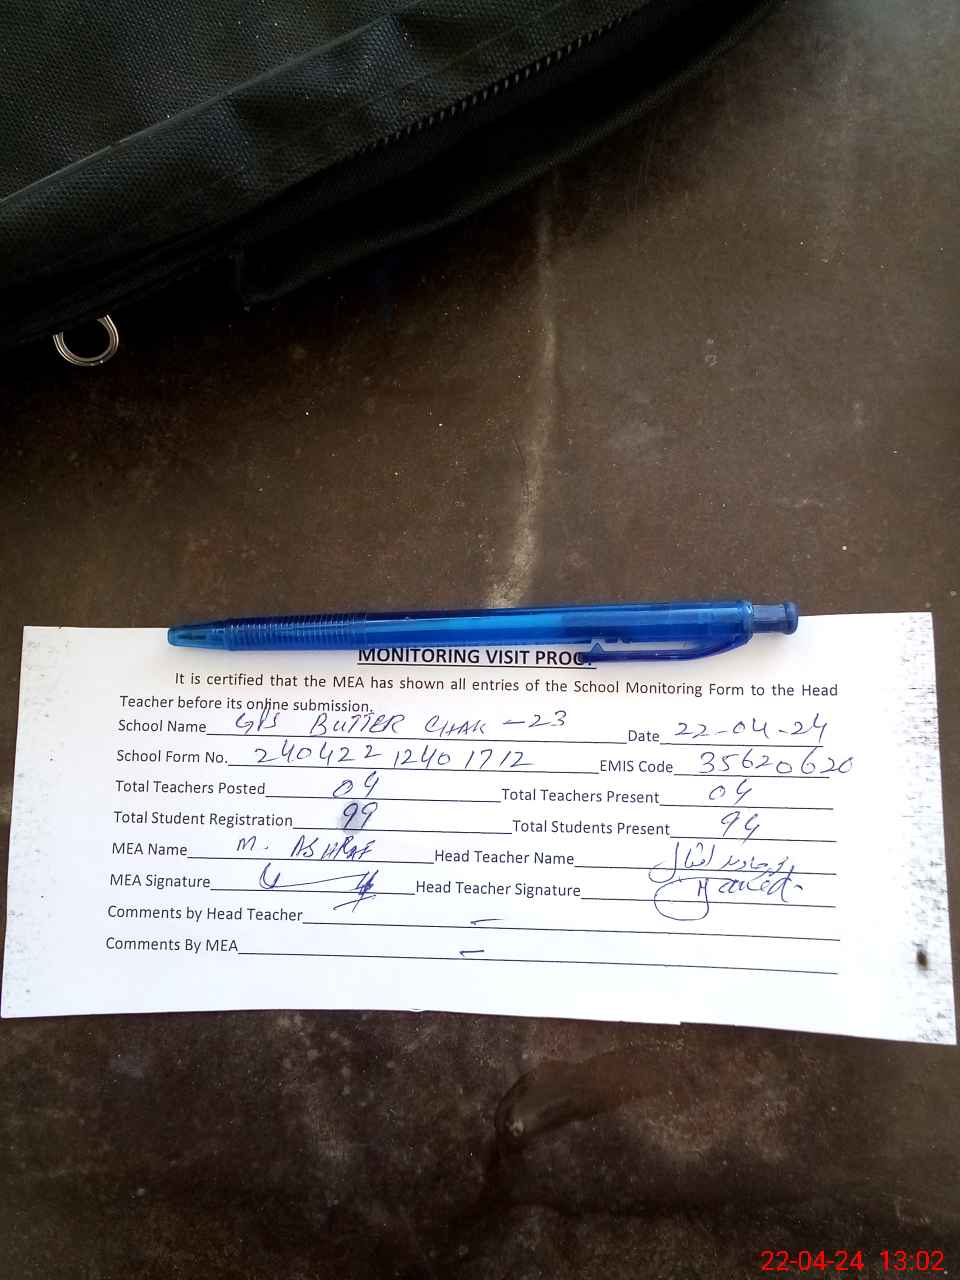 MONITORING VISIT PROOF
It is certified that the MEA has shown all entries of the School Monitoring Form to the Head
Teacher before its online submission.
School Name GPS BUTTER CHAK - 23 Date 22-04-24
School Form No. 240422 1240 1712 EMIS Code 35620620
Total Teachers Posted 04 Total Teachers Present 04
Total Student Registration 99 Total Students Present 94
MEA Name M. ASHRAF Head Teacher Name جاوید اقبال
MEA Signature Head Teacher Signature
Comments by Head Teacher -
Comments By MEA -
22-04-24 13:02